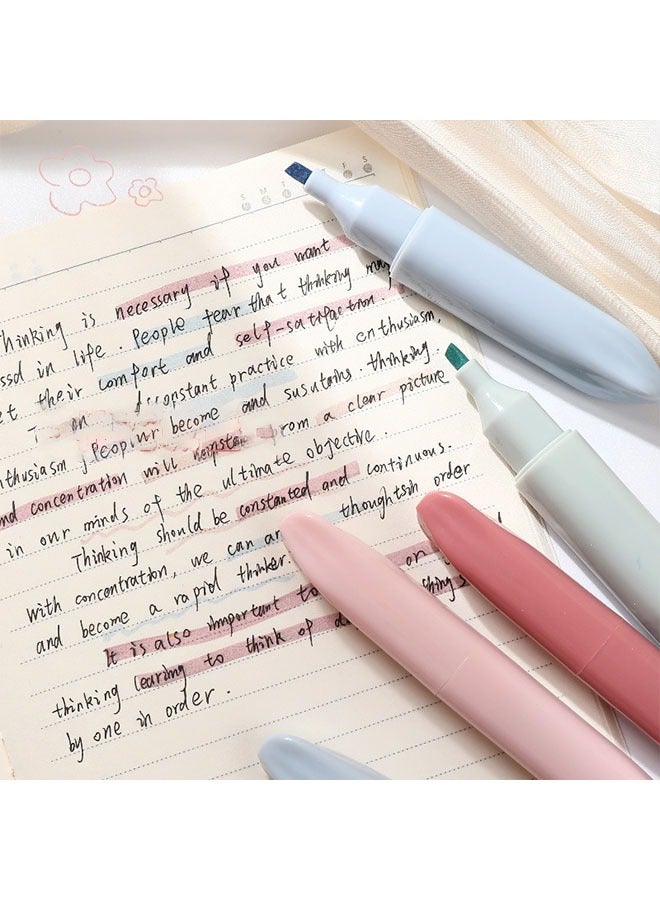 S M T F S
Thinking is necessary if you want
in life . People fear that thinking
their comfort and self-satisfaction.
constant practice with enthusiasm,
become and sustains. thinking.
enthusiasm , People from a clear picture
and concentration will
in our minds of the ultimate objective.
Thinking should be constanted and continuous.
with concentration, we can thoughtsin order
and become a rapid thinker.
It is also important to or
thinking learing to think of
by one in order .